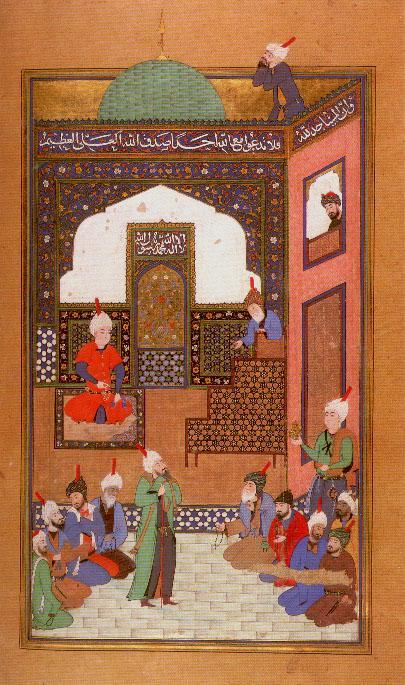 وان المساجد لله
فلا تدعوا مع الله احدا صدق الله العلى العظيم
لا اله الا الله محمد رسول الله